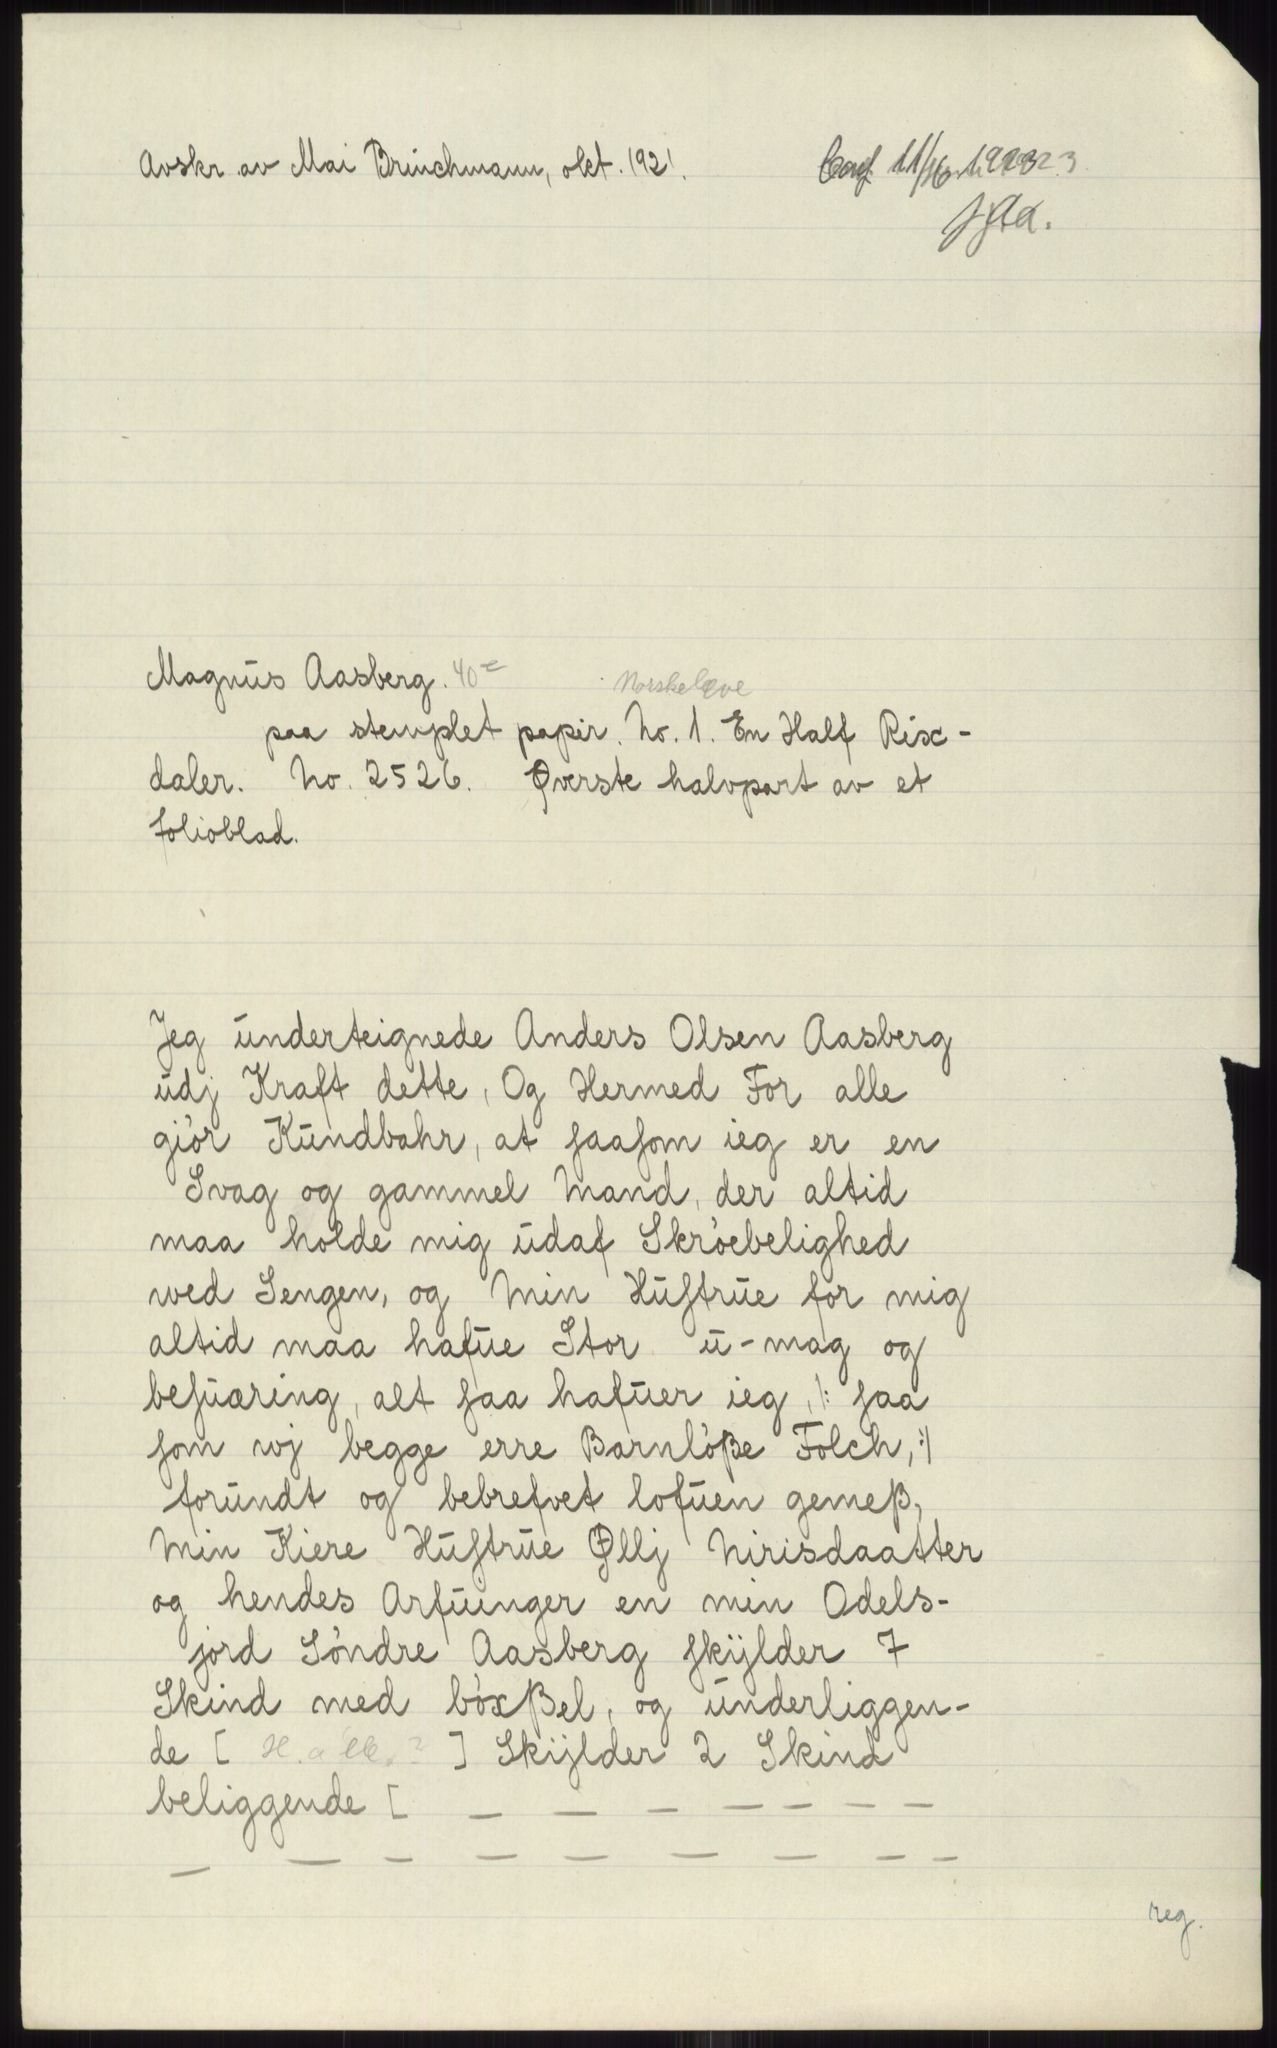 Avskr. av Mai Brinchmann, okt. 1921.
Conf. 11/
Magnus Aasberg. 40
Norskeløve
paa stemplet papir. No. 1. En Half Rixc-
daler. No. 2526. Øverste halvpart av et
folioblad.
Jeg underteignede Anders Olsen Aasberg
udj Kraft dette, Og Hermed For alle
giör Kundbahr, at saasom ieg er en
Svag og gammel Mand, der altid
maa holde mig udaf Skröebelighed
wed Sengen, og Min Hustrue for mig
altid maa hafue Stor u-mag og
besuæring, alt saa hafuer ieg, /: saa
som wj begge erre Barnlöße Folch, :/
forundt og bebrefvet lofuen gemeß,
Min Kiere Hustrue Øllj Nirisdaatter
og hendes Arfuinger en min Odels-
jord Söndre Aasberg skÿlder 7
Skind med böxßel, og underliggen-
de [ ] Skÿlder 2 Skind
beliggende [ _ _ _ _ _ _ _ _
_ _ _ _ _ _ _ _ _
reg.